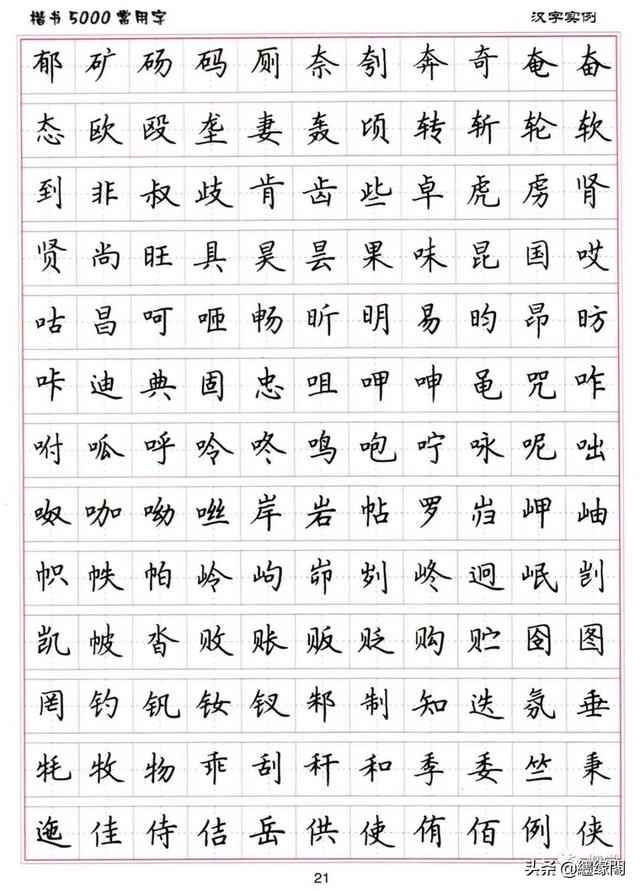 楷书5000常用字 汉字实例
郁矿砀码厕奈刳奔奇奄奋
态欧殴垄妻轰顷转斩轮软
到非叔歧肯齿些卓虎虏肾
贤尚旺具昊昙果味昆国哎
咕昌呵咂畅昕明易昀昂昉
咔迪典固忠咀呷呻黾咒咋
咐呱呼呤咚鸣咆咛咏呢咄
呶咖呦咝岸岩帖罗岿岬岫
帜帙帕岭岣峁刿峂迥岷剀
凯帔沓败账贩贬购贮囹图
罔钓钒钕钗邾制知迭氛垂
牦牧物乖刮秆和季委竺秉
迤佳侍佶岳供使侑佰例侠
21
头条 @缠缘阁